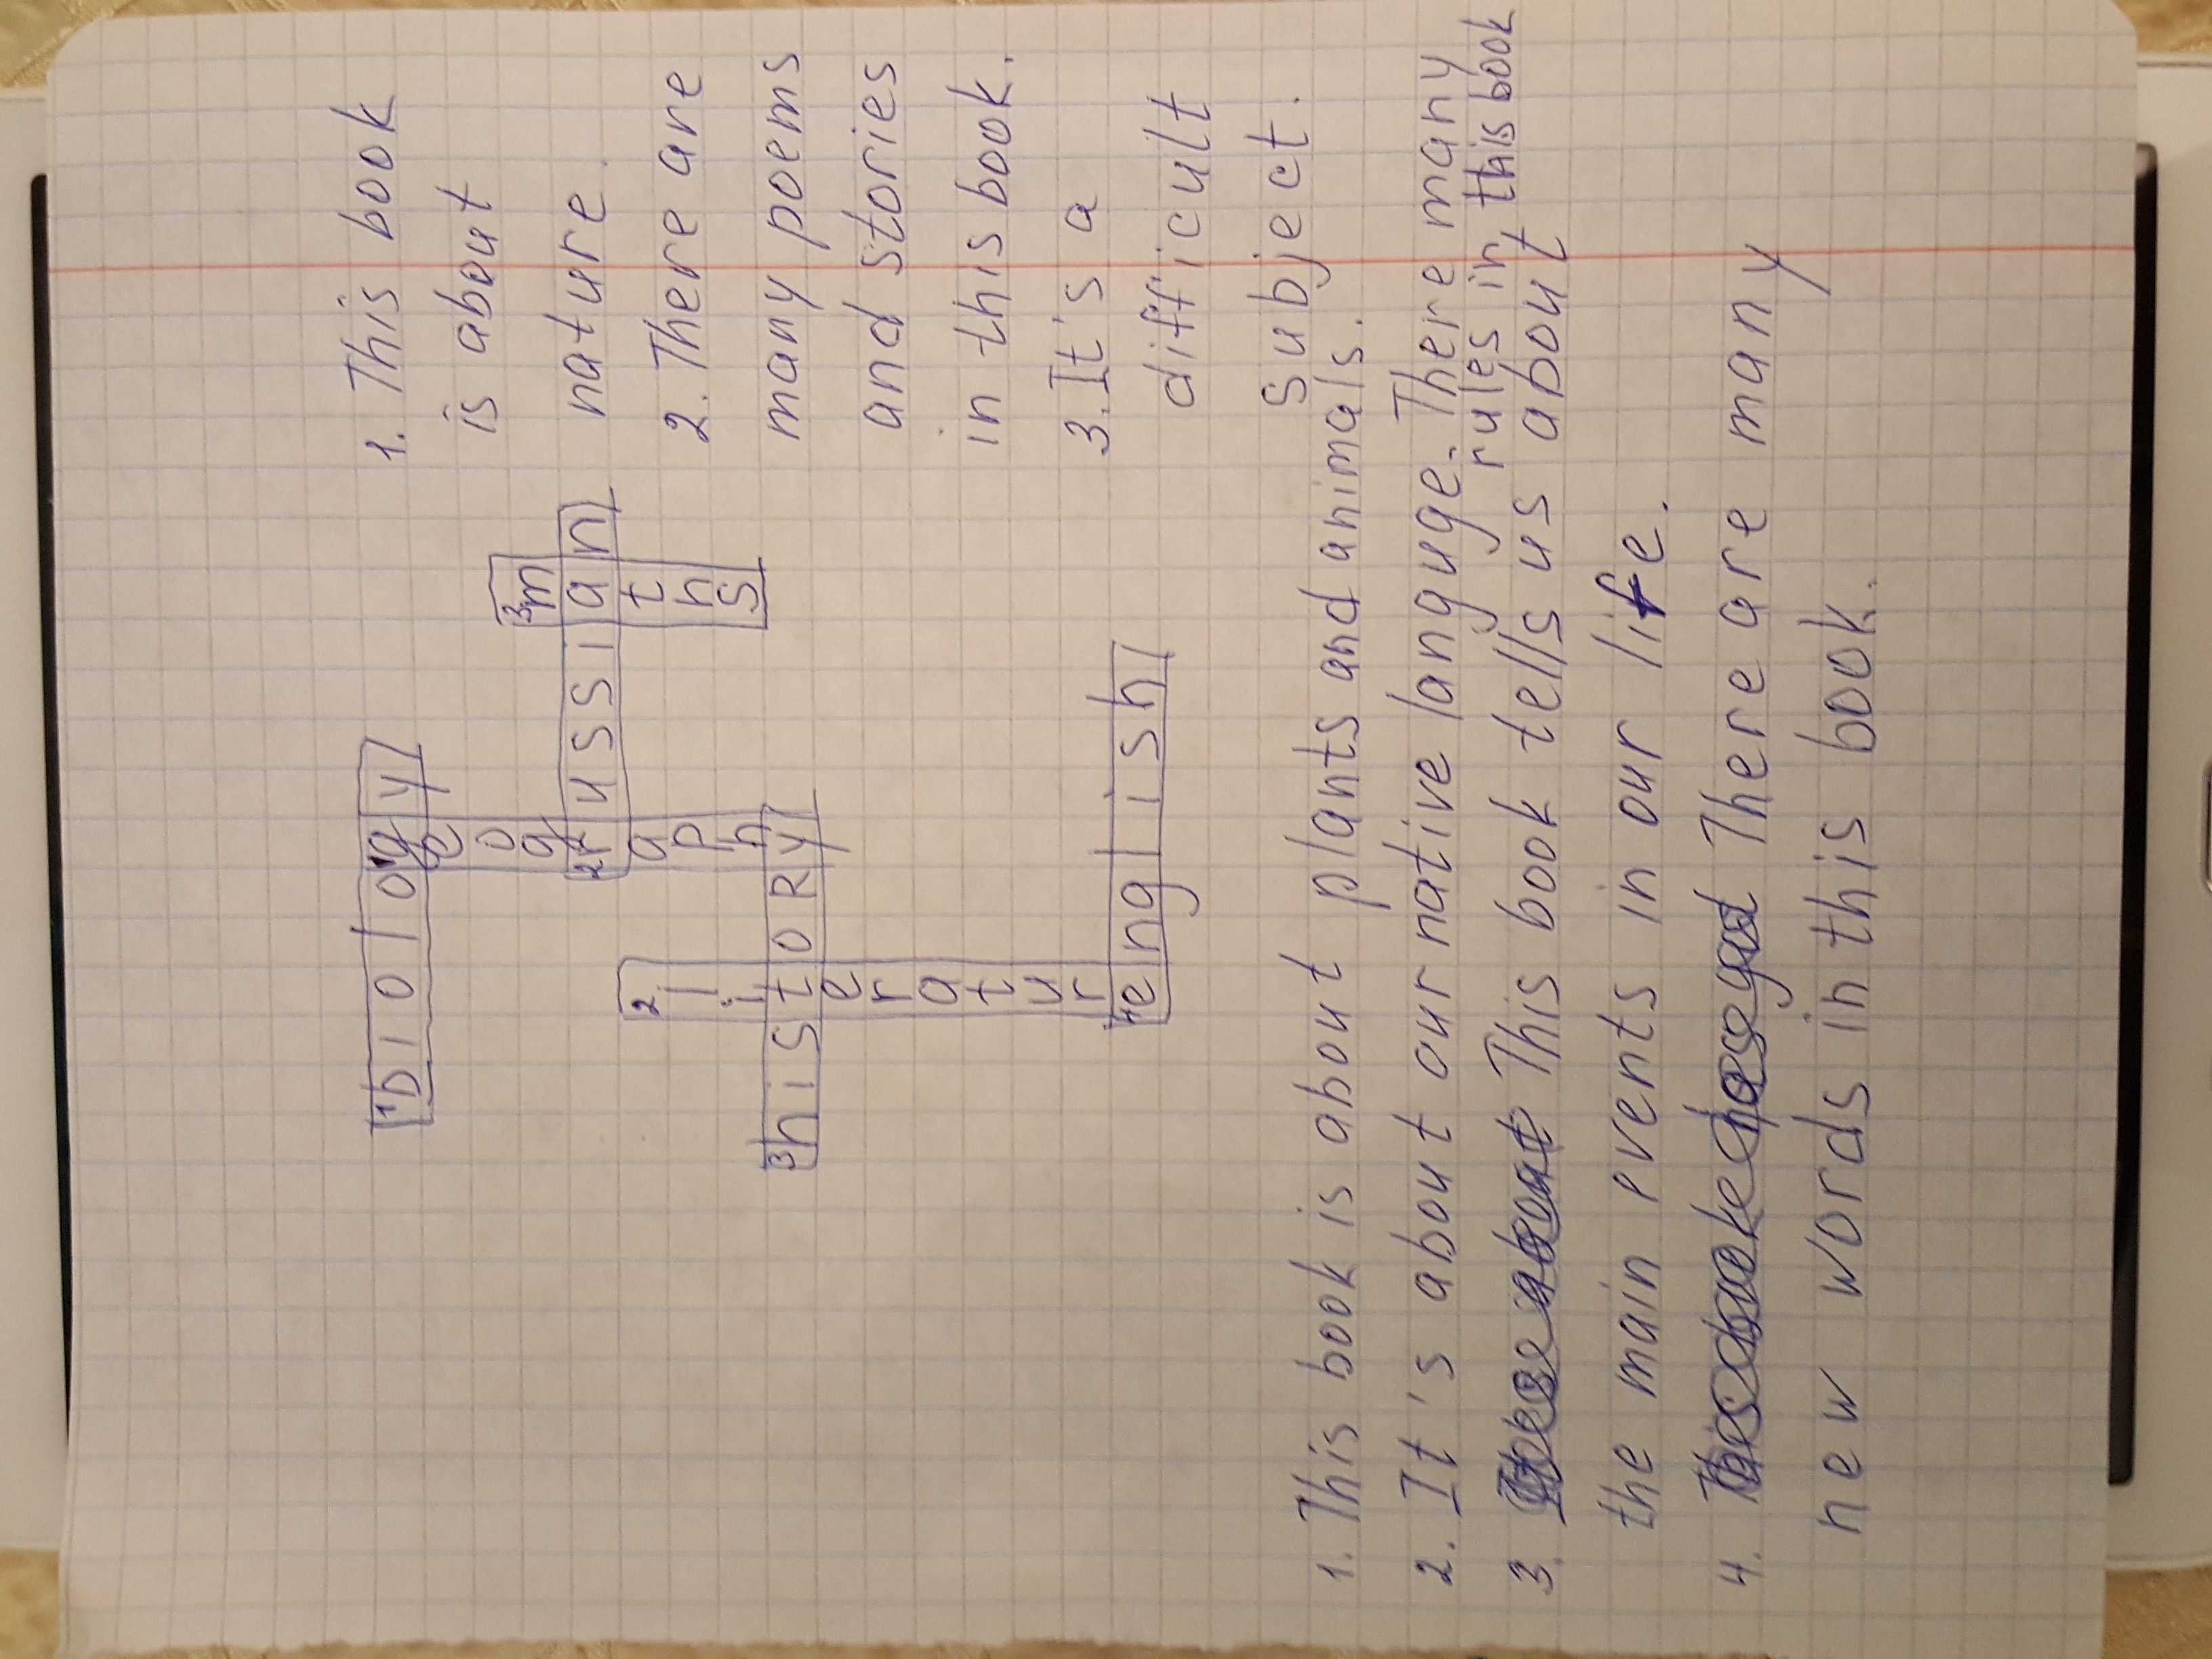 1 biology
geography
2 russian
3 maths
2 literature
3 hisTORy
4 english
1. This book
is about
nature.
2. There are
many poems
and stories
in this book.
3. It's a
difficult
subject.
1. This book is about plants and animals.
2. It's about our native languge. There many
rules in this book
3. This book tells us about
the main events in our life.
4. There are many
new words in this book.